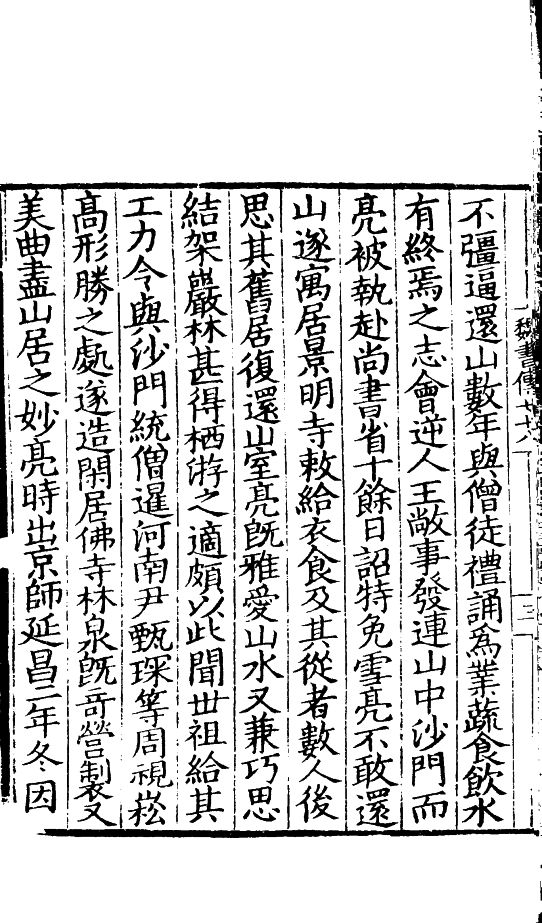 魏書傳七十八
三
不彊逼還山數年與僧徒禮誦爲業蔬食飲水
有終焉之志會逆人王敞事發連山中沙門而
亮被執赴尚書省十餘日詔特免雪亮不敢還
山遂寓居景明寺敕給衣食及其從者數人後
思其舊居復還山室亮旣雅愛山水又兼巧思
結架巖林甚得栖游之適頗以此聞世祖給其
工力令與沙門統僧暹河南尹甄琛等周視崧
高形勝之處遂造閑居佛寺林泉旣奇營製又
美曲盡山居之妙亮時出京師延昌二年冬因